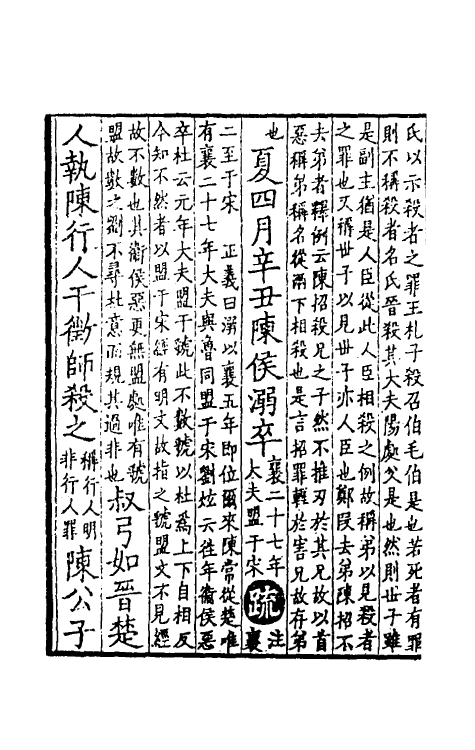 氏以示殺者之罪王札子殺召伯毛伯是也若死者有罪
則不稱殺者名氏晉殺其大夫陽處父是也然則世子雖
是副主猶是人臣從此人臣相殺之例故稱弟以見殺者
之罪也又稱世子以見世子亦人臣也鄭段去弟陳招不
去弟者釋例云陳招殺兄之子然不推刃於其兄故以首
惡稱弟稱名從兩下相殺也是言招罪輕於害兄故存弟
也
夏四月辛丑陳侯溺卒
襄二十七年
大夫盟于宋
疏
注
襄
二至于宋 正義曰溺以襄五年即位爾來陳常從楚唯
有襄二十七年大夫與魯同盟于宋劉炫云往年衛侯惡
卒杜云元年大夫盟于虢此不數虢以杜為上下自相反
今知不然者以盟于宋經有明文故指之虢盟文不見經
故不數也其衛侯惡更無盟處唯有虢
盟故數之劉不尋杜意而規其過非也
叔弓如晉楚
人執陳行人干徵師殺之
稱行人明
非行人罪
陳公子